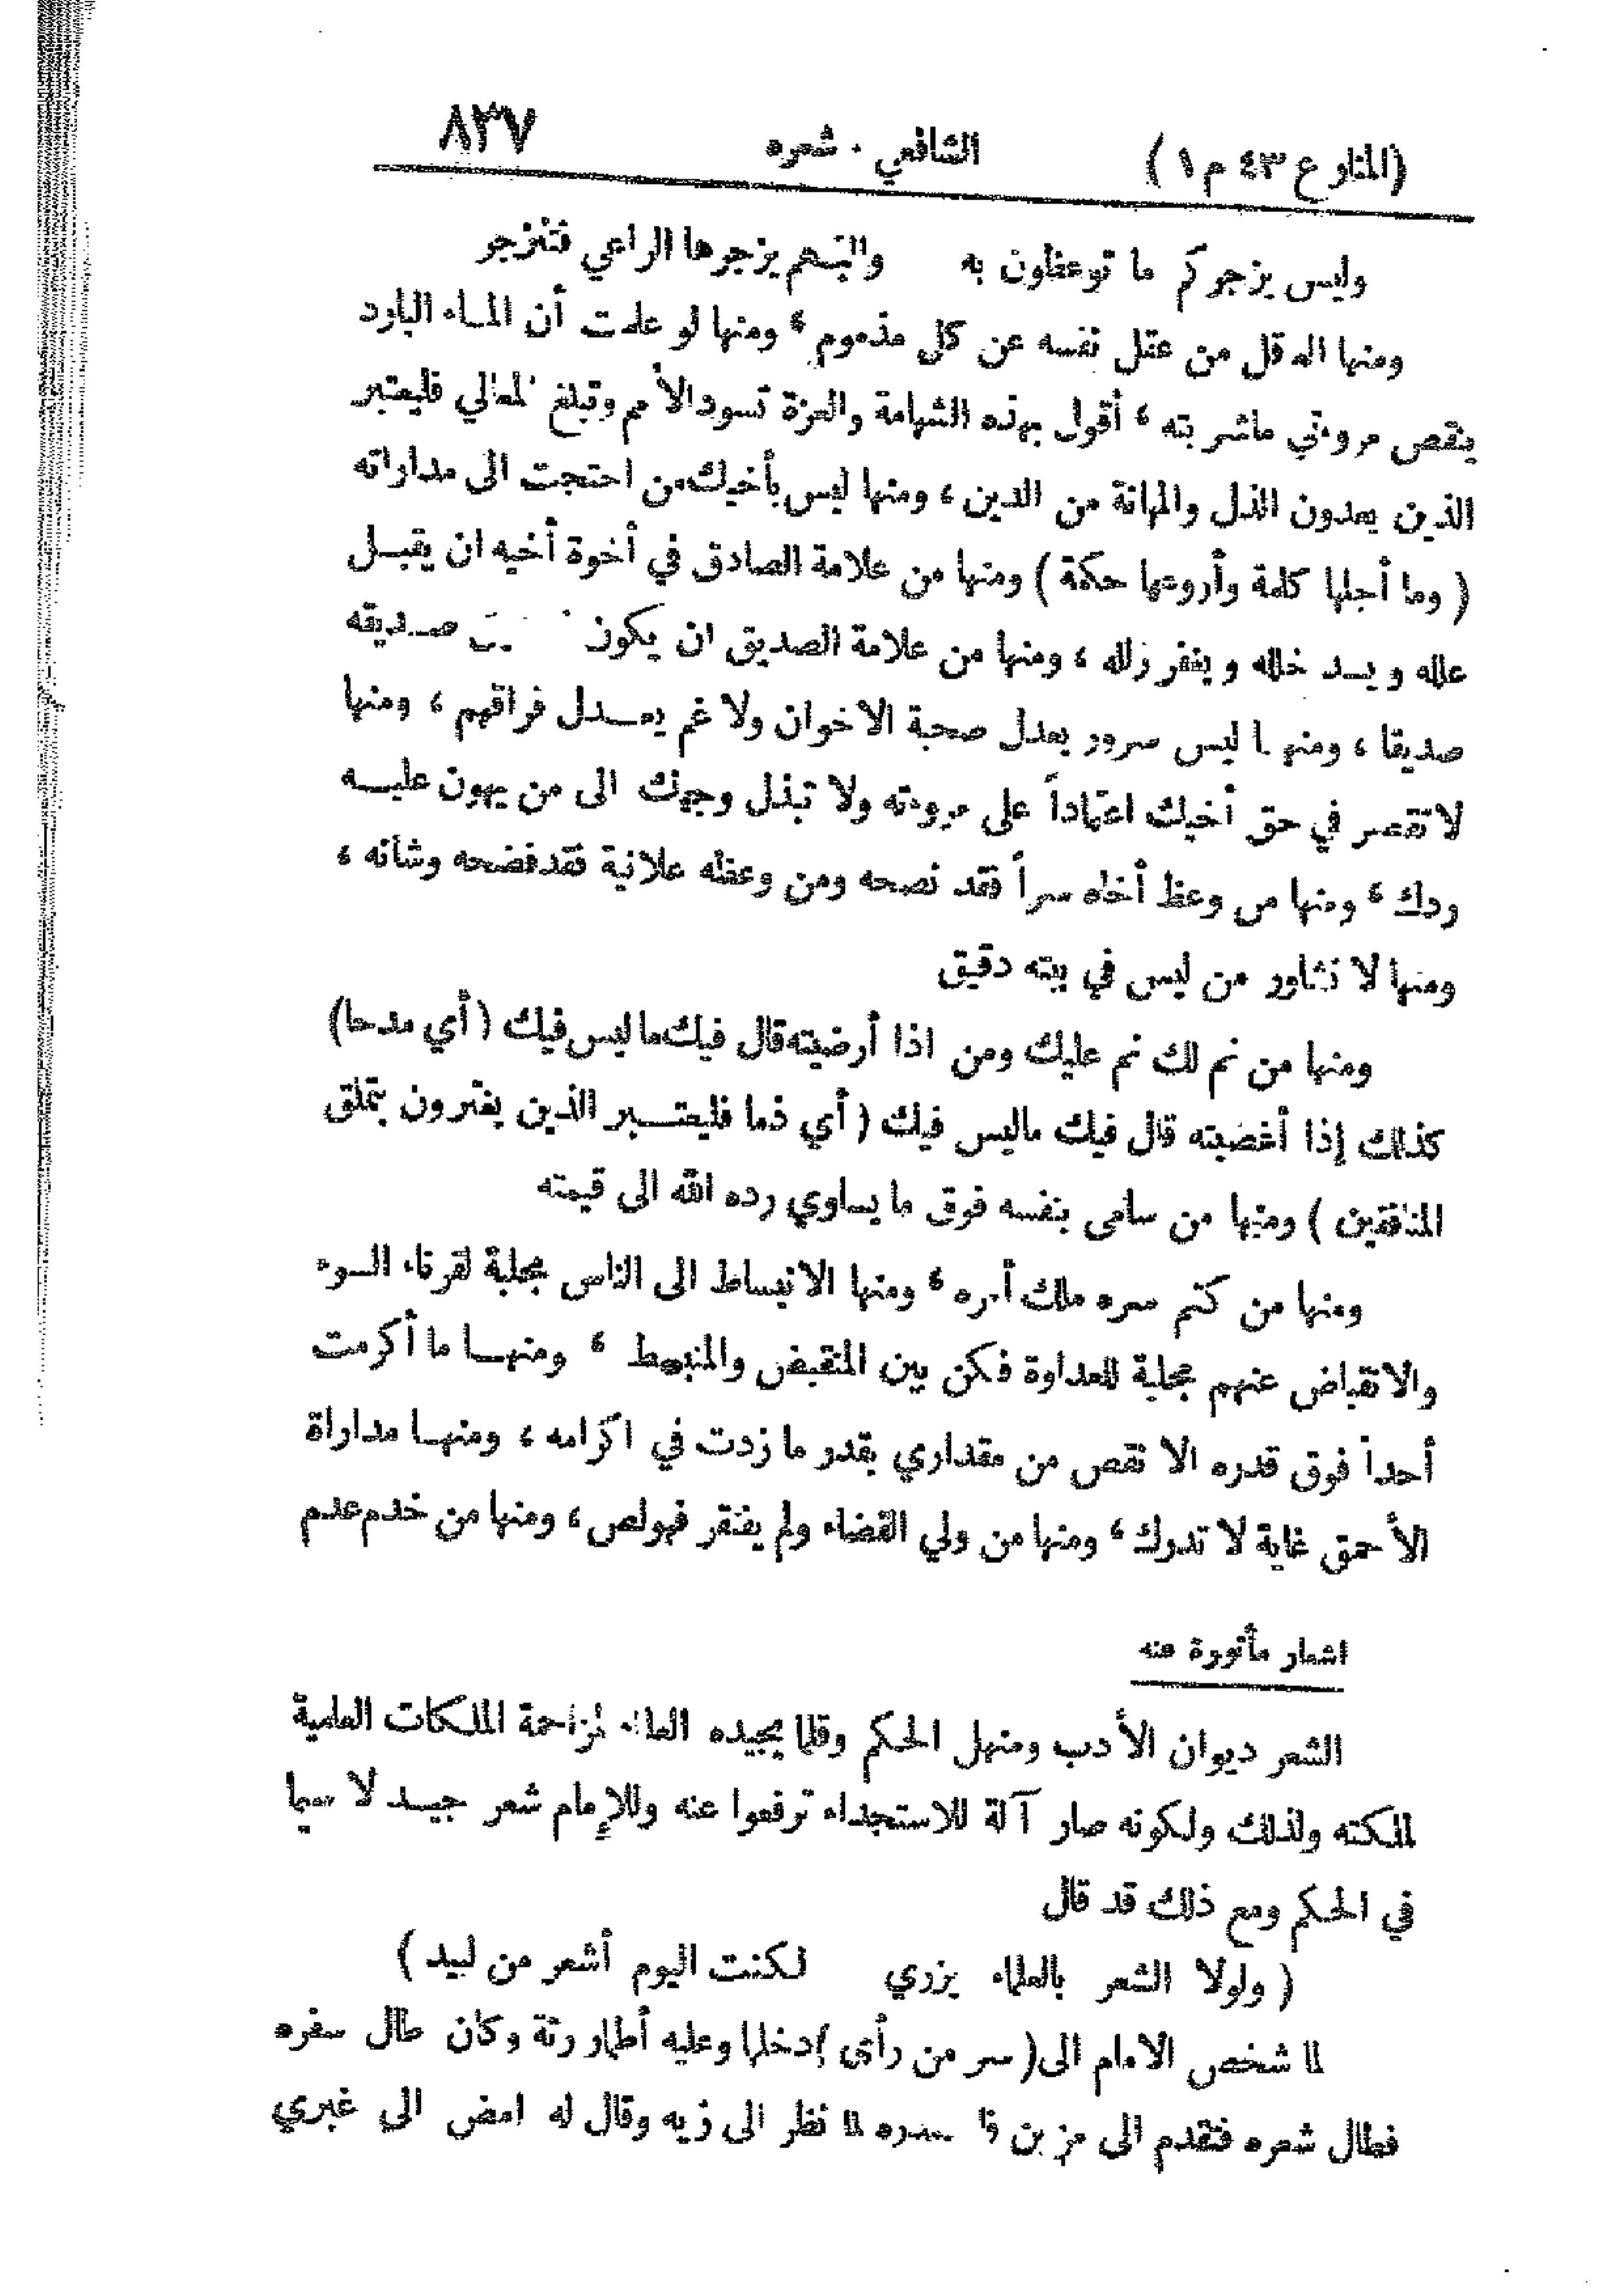 (المنارع ٤٣ م ١) الشافعي . شعره ٨٣٧
وليس يزجركم ما توعظون به والبهم يزجرها الراعي فتنزجر
ومنها العاقل من عقل نفسه عن كل مذموم ، ومنها لو علمت أن الماء البارد
ينقص مروءتي ماشربته ، أقول بهذه الشهامة والعزة تسود الأمم وتبلغ المعالي فليعتبر
الذين يعدون الذل والمهانة من الدين ، ومنها ليس بأخيك من احتجت الى مداراته
( وما أجلها كلمة وأروعها حكمة ) ومنها من علامة الصادق في أخوة أخيه ان يقبل
علله ويسد خلله ويغفر زلله ، ومنها من علامة الصديق ان يكون صديقه
صديقا ، ومنها ليس سرور يعدل صحبة الاخوان ولا غم يعدل فراقهم ، ومنها
لا تقصر في حق أخيك اعتماداً على مروءته ولا تبذل وجهك الى من يهون عليه
ردك ، ومنها من وعظ أخاه سراً فقد نصحه ومن وعظه علانية فقد فضحه وشانه ،
ومنها لا تشاور من ليس في بيته دقيق
ومنها من نم لك نم عليك ومن اذا أرضيته قال فيك ما ليس فيك ( أي مدحا )
كذلك إذا أغضبته قال فيك ماليس فيك ( أي ذما فليعتبر الذين يغترون بتملق
المنافقين ) ومنها من سامى بنفسه فوق ما يساوي رده الله الى قيمته
ومنها من كتم سره ملك أمره ، ومنها الانبساط الى الناس مجلبة لقرناء السوء
والانقباض عنهم مجلبة للعداوة فكن بين المنقبض والمنبسط ، ومنها ما أكرمت
أحداً فوق قدره الا نقص من مقداري بقدر ما زدت في اكرامه ، ومنها مداراة
الأحمق غاية لا تدرك ، ومنها من ولي القضاء ولم يفتقر فهو لص ، ومنها من خدم عدم
اشعار مأثورة عنه
الشعر ديوان الأدب ومنهل الحكم وقلما يجيده العلماء لمزاحمة الملكات العلمية
لملكته ولذلك ولكونه صار آلة للاستجداء ترفعوا عنه وللإمام شعر جيد لا سيما
في الحكم ومع ذلك قد قال
( ولولا الشعر بالعلماء يزري لكنت اليوم أشعر من لبيد )
لما شخص الامام الى ( سر من رأى ) دخلها وعليه أطمار رثة وكان طال سفره
فطال شعره فتقدم الى مزين لما نظر الى زيه وقال له امض الى غيري